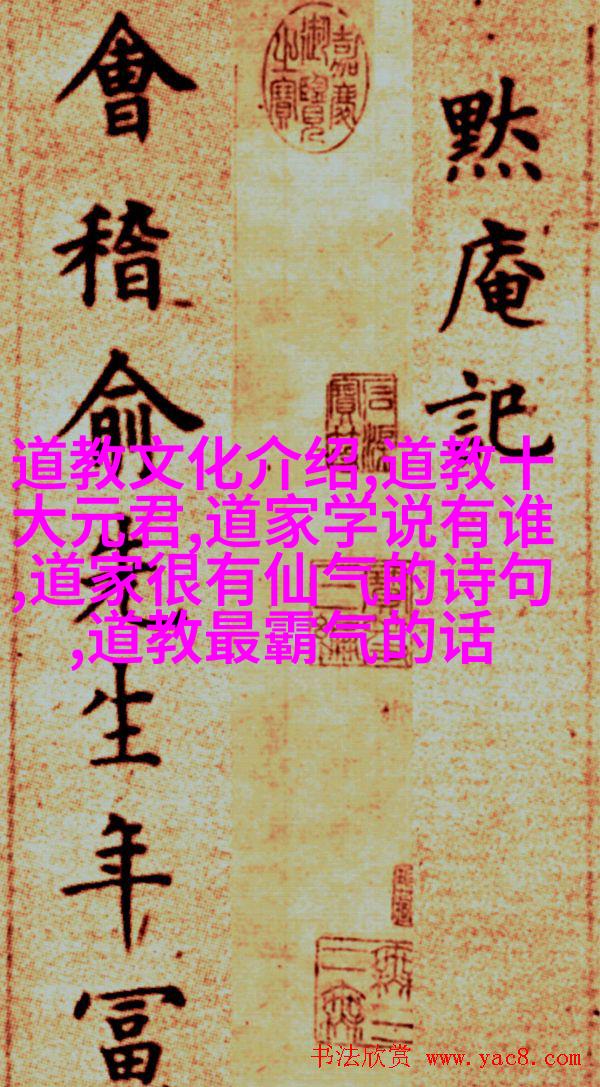 黙庵記
嘉慶御覽之寶
會稽俞先生年冨
道教文化介绍,道教十
大元君,道家学说有谁
,道家很有仙气的诗句
,道教最霸气的话
书法欣赏 www.yac8.com